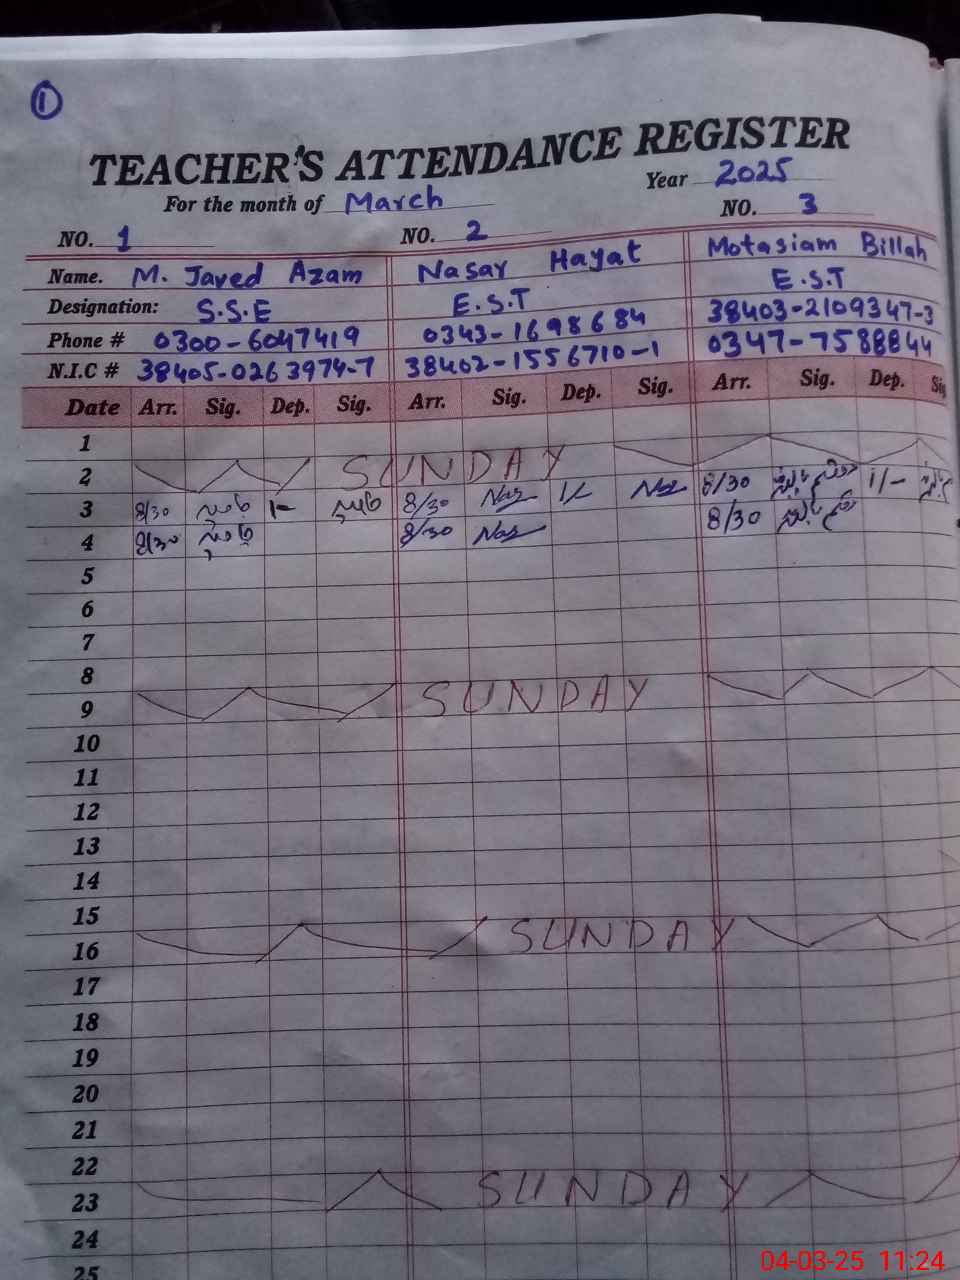 1
TEACHER'S ATTENDANCE REGISTER
For the month of March Year 2025
NO. 1 NO. 2 NO. 3
Name. M. Javed Azam Nasar Hayat Motasiam Billah
Designation: S.S.E E.S.T E.S.T
Phone # 0300-6047419 0343-1698684 38403-2109347-3
N.I.C # 38405-0263974-7 38402-1556710-1 0347-7588844
Date Arr. Sig. Dep. Sig. Arr. Sig. Dep. Sig. Arr. Sig. Dep. Sig
1
2 SUNDAY
3 8/30 1- 8/30 Nas 1/- Nas 8/30 1/-
4 8/30 8/30 Nas 8/30
5
6
7
8
9 SUNDAY
10
11
12
13
14
15
16 SUNDAY
17
18
19
20
21
22
23 SUNDAY
24
25
04-03-25 11:24